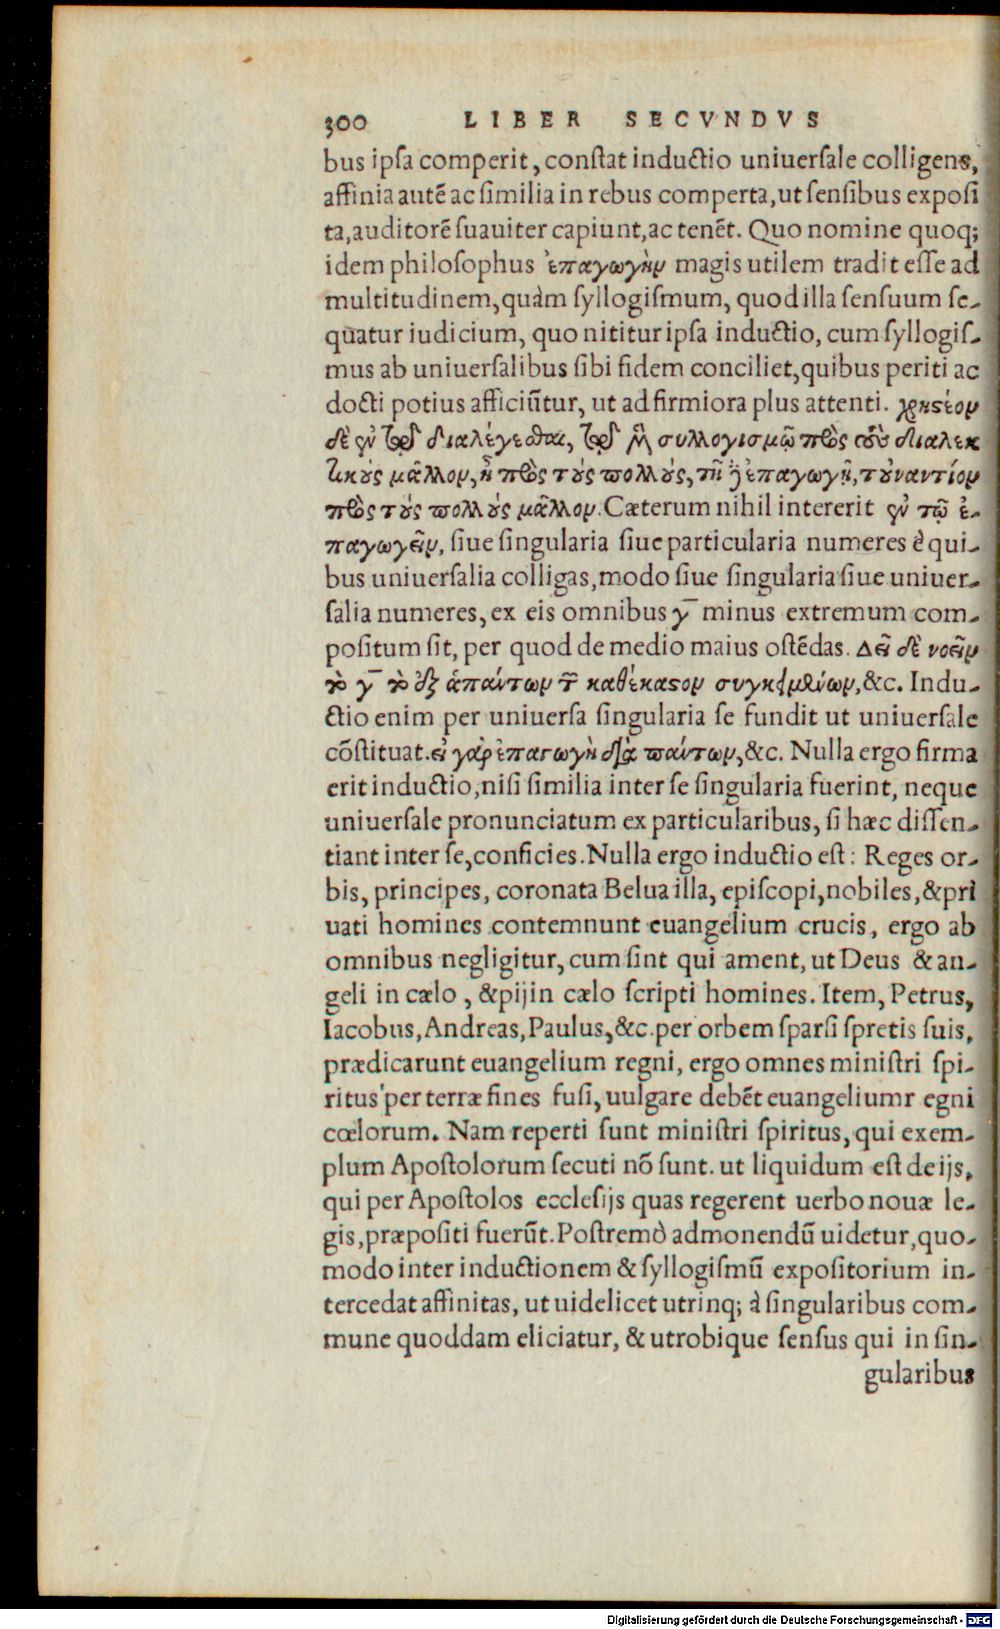 300 LIBER SECVNDVS
bus ipſa comperit, conſtat inductio uniuerſale colligens,
affinia autē ac ſimilia in rebus comperta, ut ſenſibus expoſi
ta, auditorē ſuauiter capiunt, ac tenēt. Quo nomine quoq;
idem philoſophus ἐπαγωγὴν magis utilem tradit eſſe ad
multitudinem, quàm ſyllogiſmum, quod illa ſenſuum ſe-
quatur iudicium, quo nititur ipſa inductio, cum ſyllogiſ-
mus ab uniuerſalibus ſibi fidem conciliet, quibus periti ac
docti potius afficiūtur, ut ad firmiora plus attenti. χρηστέον
δὲ ἐν τῷ διαλέγεσθαι, τῷ μὲν συλλογισμῷ πρὸς τοὺς διαλεκ
τικοὺς μᾶλλον, ἢ πρὸς τοὺς πολλοὺς, τῇ δὲ ἐπαγωγῇ, τοὐναντίον
πρὸς τοὺς πολλοὺς μᾶλλον. Cæterum nihil intererit ἐν τῷ ἐ-
παγωγεῖν, ſiue ſingularia ſiue particularia numeres è qui-
bus uniuerſalia colligas, modo ſiue ſingularia ſiue uniuer-
ſalia numeres, ex eis omnibus γ̄ minus extremum com-
poſitum ſit, per quod de medio maius oſtēdas. Δεῖ δὲ νοεῖν
τὸ γ̄ τὸ ἐξ ἁπάντων τῶν καθέκαστον συγκείμενον, &c. Indu-
ctio enim per uniuerſa ſingularia ſe fundit ut uniuerſale
cōſtituat. εἰ γὰρ ἐπαγωγὴ διὰ πάντων, &c. Nulla ergo firma
erit inductio, niſi ſimilia inter ſe ſingularia fuerint, neque
uniuerſale pronunciatum ex particularibus, ſi hæc diſſen-
tiant inter ſe, conficies. Nulla ergo inductio eſt: Reges or-
bis, principes, coronata Belua illa, epiſcopi, nobiles, & pri
uati homines contemnunt euangelium crucis, ergo ab
omnibus negligitur, cum ſint qui ament, ut Deus & an-
geli in cælo, & pij in cælo ſcripti homines. Item, Petrus,
Iacobus, Andreas, Paulus, &c. per orbem ſparſi ſpretis ſuis,
prædicarunt euangelium regni, ergo omnes miniſtri ſpi-
ritus per terræ fines fuſi, uulgare debēt euangeliumr egni
cœlorum. Nam reperti ſunt miniſtri ſpiritus, qui exem-
plum Apoſtolorum ſecuti nō ſunt. ut liquidum eſt de ijs,
qui per Apoſtolos eccleſijs quas regerent uerbo nouæ le-
gis, præpoſiti fuerūt. Poſtremò admonendū uidetur, quo-
modo inter inductionem & ſyllogiſmū expoſitorium in-
tercedat affinitas, ut uidelicet utrinq; à ſingularibus com-
mune quoddam eliciatur, & utrobique ſenſus qui in ſin-
gularibus
Digitalisierung gefördert durch die Deutsche Forschungsgemeinschaft - DFG